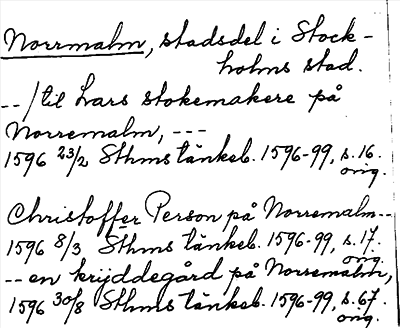 Norrmalm, stadsdel i Stock-
holms stad.
--/til Lars stokemakere på
Norremalm, ---
1596 23/2 Sthms tänkeb. 1596-99, s. 16.
orig.
Christoffer Person på Norremalm--
1596 8/3 Sthms tänkeb. 1596-99, s. 17.
orig.
-- en kryddegård på Norremalm,
1596 30/8 Sthms tänkeb. 1596-99, s. 67.
orig.